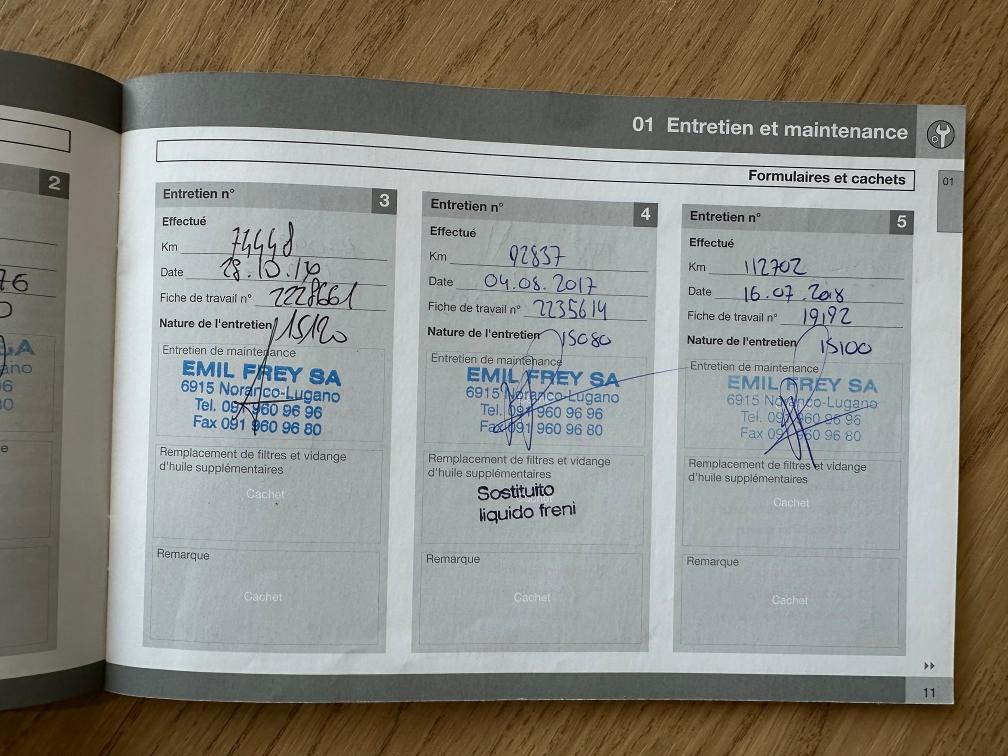 01 Entretien et maintenance
Formulaires et cachets
01
2
76
Entretien n° 3
Effectué
Km 74448
Date
Fiche de travail n° 2228661
Nature de l'entretien 15120
Entretien de maintenance
EMIL FREY SA
6915 Noranco-Lugano
Tel. 091 960 96 96
Fax 091 960 96 80
Remplacement de filtres et vidange
d'huile supplémentaires
Cachet
Remarque
Cachet
Entretien n° 4
Effectué
Km 92837
Date 04.08.2017
Fiche de travail n° 2235614
Nature de l'entretien 15080
Entretien de maintenance
EMIL FREY SA
6915 Noranco-Lugano
Tel. 091 960 96 96
Fax 091 960 96 80
Remplacement de filtres et vidange
d'huile supplémentaires
Cachet
Sostituito
liquido freni
Remarque
Cachet
Entretien n° 5
Effectué
Km 112702
Date 16.07.2018
Fiche de travail n° 19192
Nature de l'entretien 15100
Entretien de maintenance
EMIL FREY SA
6915 Noranco-Lugano
Tel. 091 960 96 96
Fax 091 960 96 80
Remplacement de filtres et vidange
d'huile supplémentaires
Cachet
Remarque
Cachet
11